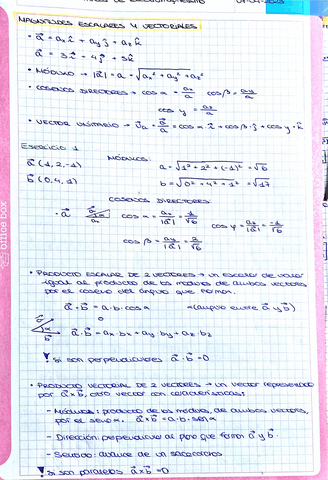 MAGNITUDES ESCALARES Y VECTORIALES
• a⃗ = axî + ayĵ + azk̂
• MÓDULO → |a⃗| = a = √ax² + ay² + az²
• COSENOS DIRECTORES → cos α = ax/a cos β = ay/a
cos γ = az/a
• VECTOR UNITARIO → u⃗a = a⃗/a = cos α · î + cos β · ĵ + cos γ · k̂
Ejercicio 1
MÓDULOS:
a⃗ (1, 2, -1) a = √1² + 2² + (-1)² = √6
b⃗ (0, 4, 1) b = √0² + 4² + 1² = √17
COSENOS DIRECTORES:
• a⃗ cos α = ax/|a⃗| = 1/√6 cos γ = az/|a⃗| = -1/√6
cos β = ay/|a⃗| = 2/√6
• PRODUCTO ESCALAR DE 2 VECTORES → un escalar de valor
igual al producto de los módulos de ambos vectores
por el coseno del ángulo que forman.
a⃗ · b⃗ = a · b · cos α α (ángulo entre a⃗ y b⃗)
o
a⃗ · b⃗ = ax · bx + ay · by + az · bz
! Si son perpendiculares a⃗ · b⃗ = 0
• PRODUCTO VECTORIAL DE 2 VECTORES → un vector representado
por a⃗ x b⃗, otro vector con características:
- Módulo: producto de los módulos, de ambos vectores,
por el seno α. a⃗ x b⃗ = a · b · sen α
- Dirección: perpendicular al plano que forman a⃗ y b⃗.
- Sentido: avance de un sacacorchos
! Si son paralelos a⃗ x b⃗ = 0
office box